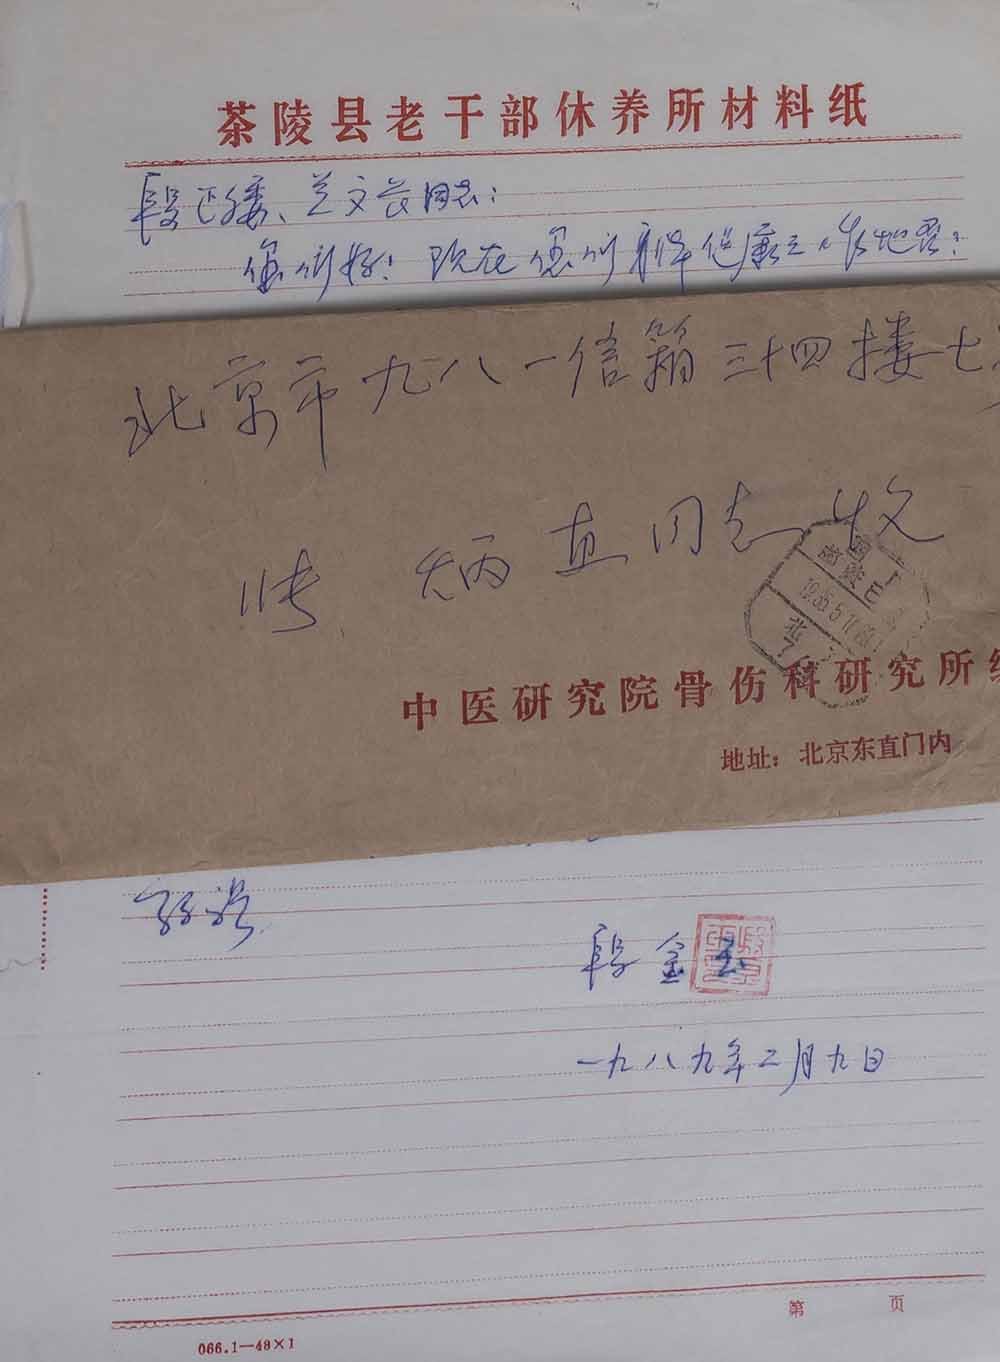 茶陵县老干部休养所材料纸
段 文 同志：
您们好！现在您们身体健康 工作 地
北京市九八一信箱三十四楼七
张炳直同志收
1985.5.1
北
中医研究院骨伤科研究所
地址：北京东直门内
敬礼
段金玉
一九八九年二月九日
第 页
066.1—48×1